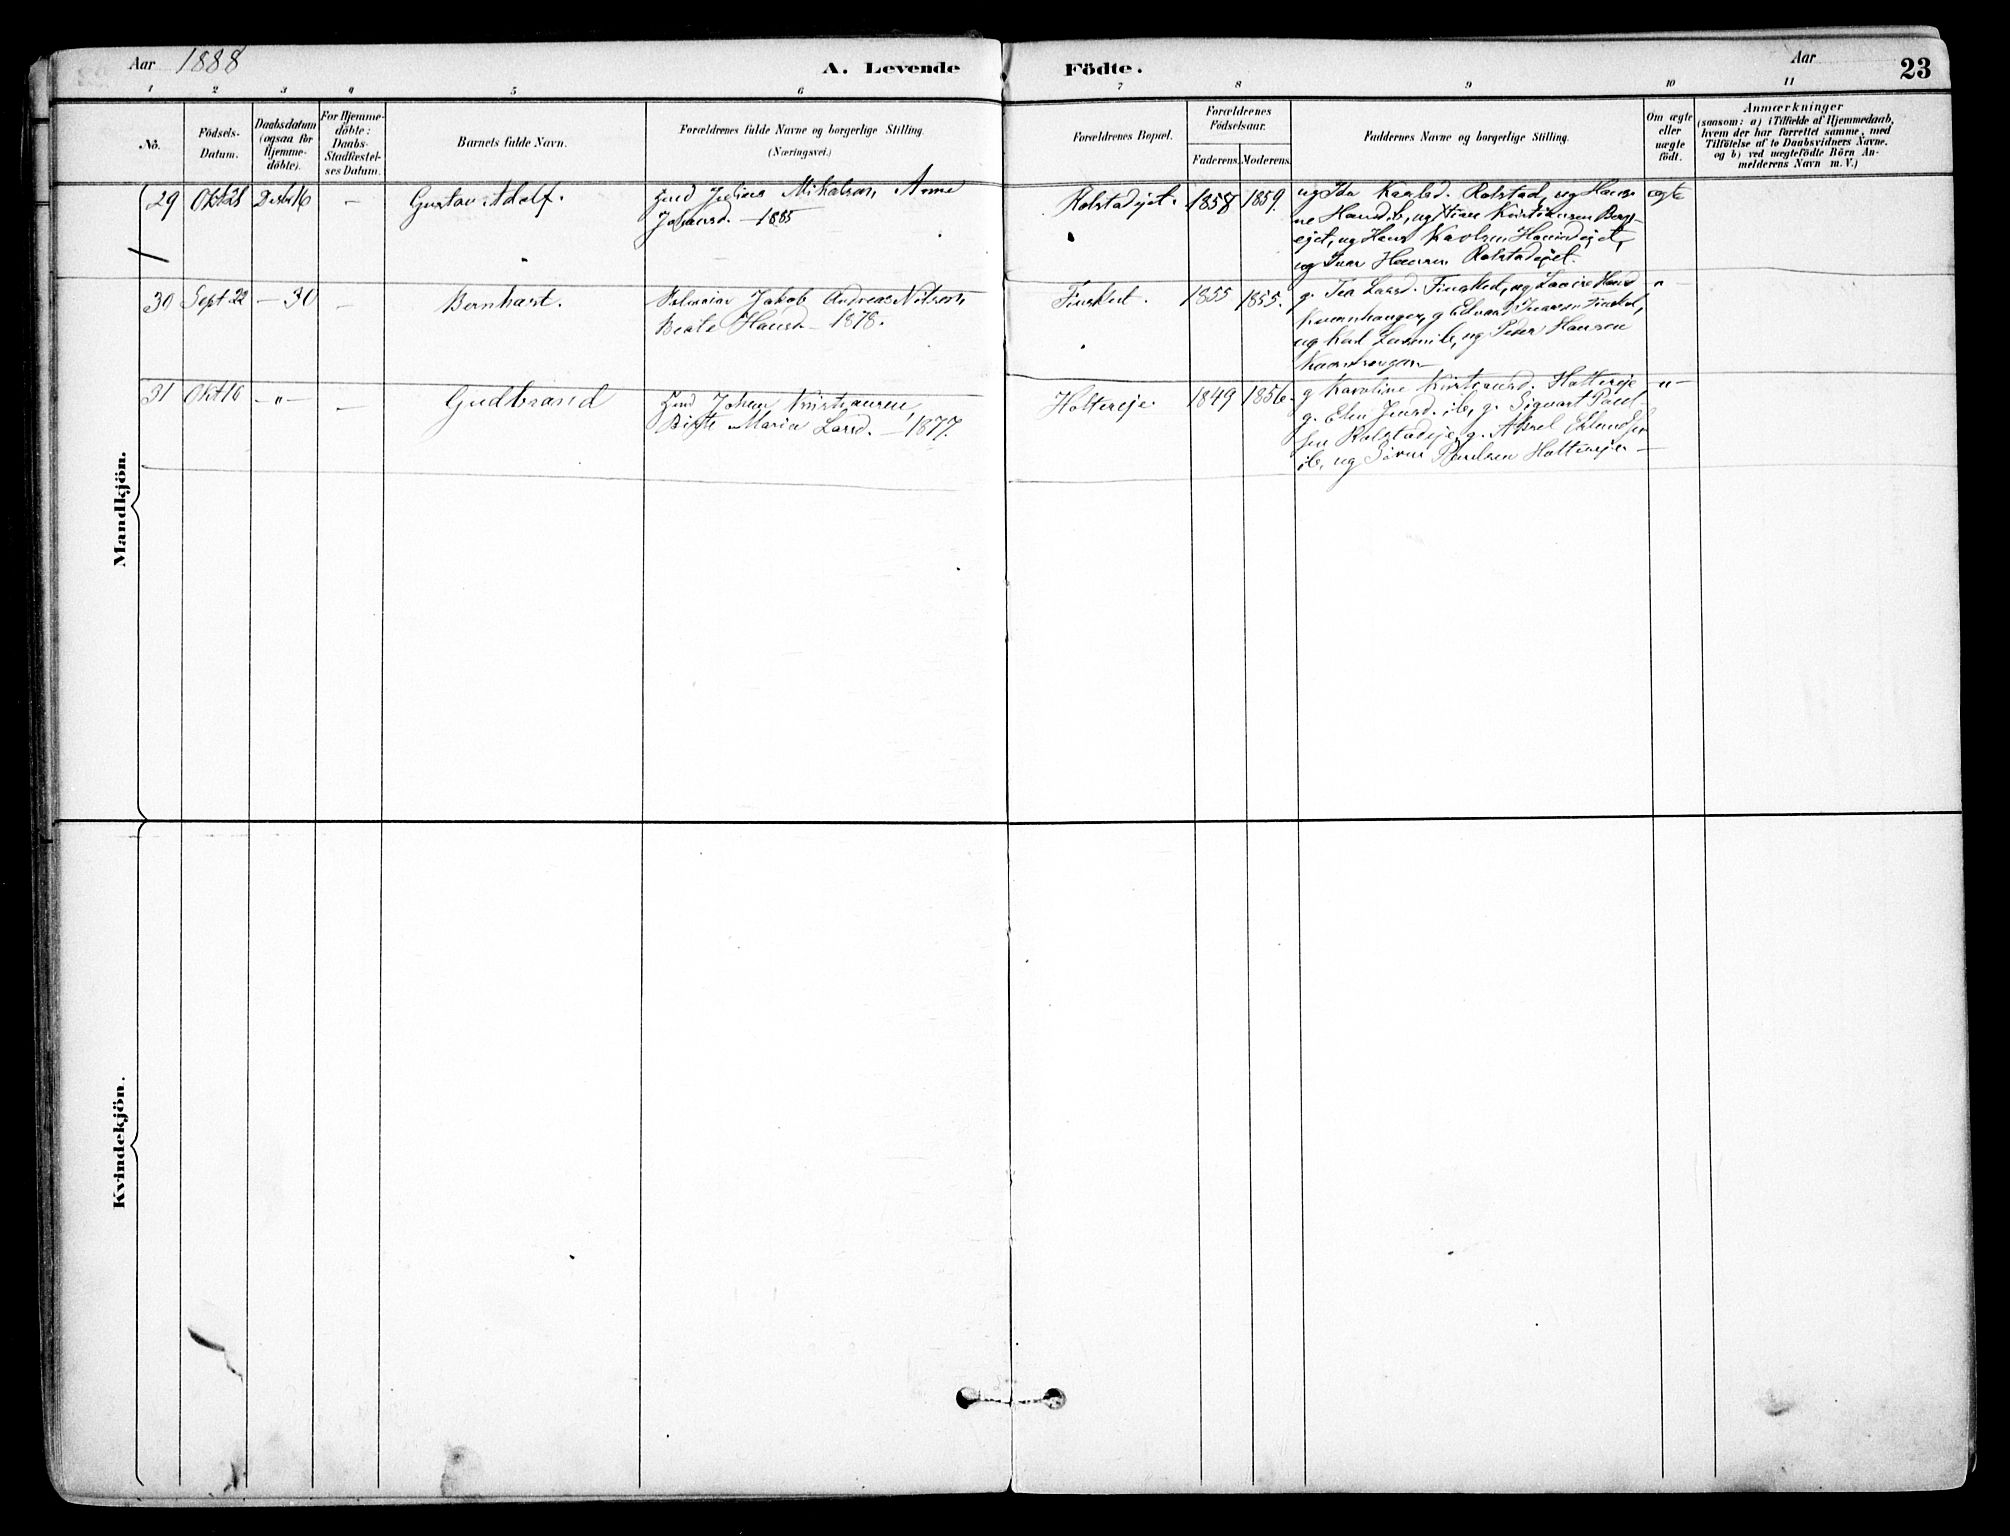 Aar 1888
A. Levende Födte.
Aar
23
1 2 3 4 5 6 7 8 9 10 11
No.
Födsels-
Datum.
Daabsdatum
(ogsaa for
Hjemme-
döbte).
For Hjemme-
döbte:
Daabs-
Stadfæstel-
ses Datum.
Barnets fulde Navn.
Forældrenes fulde Navne og borgerlige Stilling.
(Næringsvei.)
Forældrenes Bopæl.
Forældrenes
Födselsaar.
Faderens. Moderens.
Faddernes Navne og borgerlige Stilling.
Om ægte
eller
uægte
födt.
Anmærkninger
(saasom: a) i Tilfælde af Hjemmedaab,
hvem der har forrettet samme, med
Tilföielse af to Daabsvidners Navne,
og b) ved uægtefödte Börn An-
melderens Navn m. V.)
Mandkjön.
29 Okt 28 Desbr 16 — Gustav Adolf.
Julius Mikalsen Anne
Johansd. — 1885
Rolstadejet. 1858 1859.
ug Ida Rolstad, ug Han-
ne Hansd ib, ug Kristiansen Berg-
ejet, ug Hans Karlsen
ug Ivar Hansen Rolstadejet.
ægte
30 Sept 22 — 30 — Bernhart.
Jakob Andreas Nilsen
Beate Hansd — 1878.
1855 1855.
g. Tea Larsd. ug Hansd
g Edvart Ivarsen
ug ib, ug Peder Hansen
„ —
31 Okt 16 — „ — — Gudbrand
Johan Kristiansen
Maria Larsd. — 1877.
Holtereje. 1849 1856.
g Karoline Holtereje
g. Elen Jensd. ib, g. Sigvart Paul-
sen Rolstadeje, g. Aksel
ib, ug Paulsen Holtereje —
„ —
Kvindekjön.